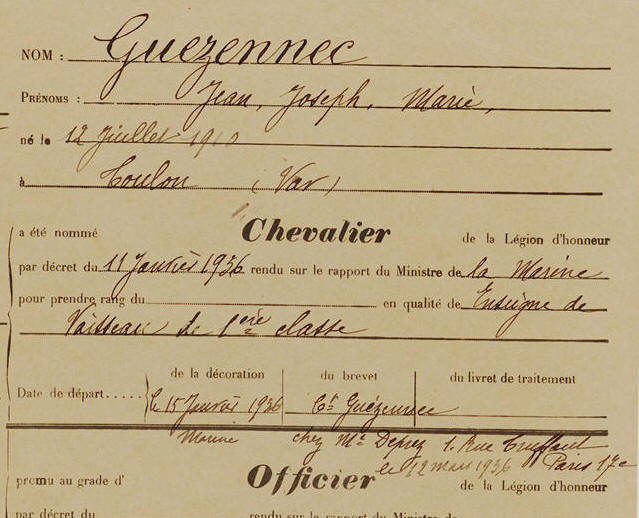 NOM : Guezennec
PRÉNOMS : Jean, Joseph, Marie,
né le 12 Juillet 1910
à Toulon (Var)
a été nommé Chevalier de la Légion d'honneur
par décret du 11 Janvier 1936 rendu sur le rapport du Ministre de la Marine
pour prendre rang du en qualité de Enseigne de
Vaisseau de 1ère classe
de la décoration du brevet du livret de traitement
Date de départ..... le 15 Janvier 1936 Ct Guézennec
Marine chez Me Deprez 1. Rue Truffaut
le 12 mars 1936 Paris 17e
promu au grade d' Officier de la Légion d'honneur
par décret du rendu sur le rapport du Ministre de